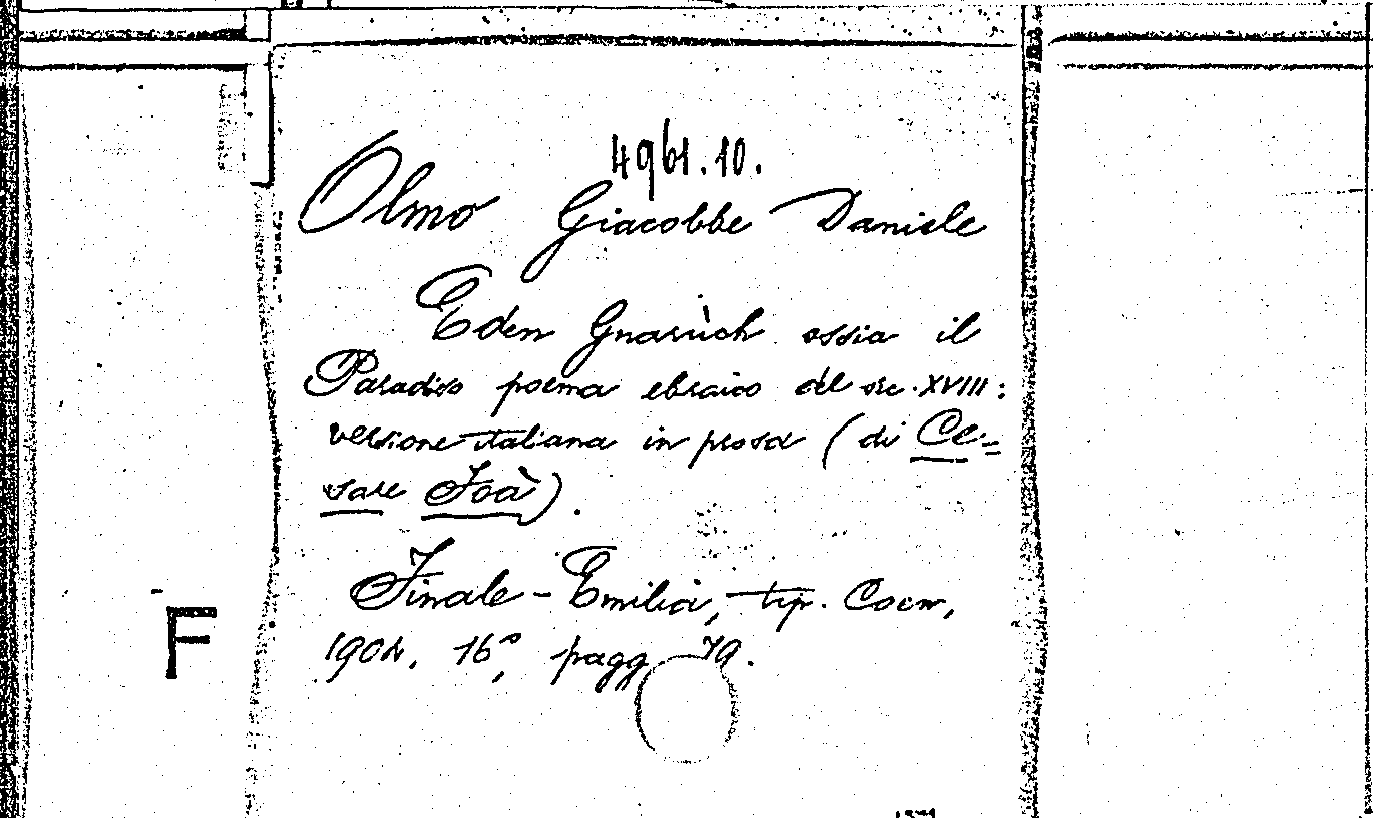 4961.10.
Olmo Giacobbe Daniele
Eden Gnarùch ossia il
Paradiso poema ebraico del sec. XVIII:
versione italiana in prosa (di Ce-
sare Foà).
Finale-Emilia, tip. Coen,
1904. 16°, pagg. 79.
F